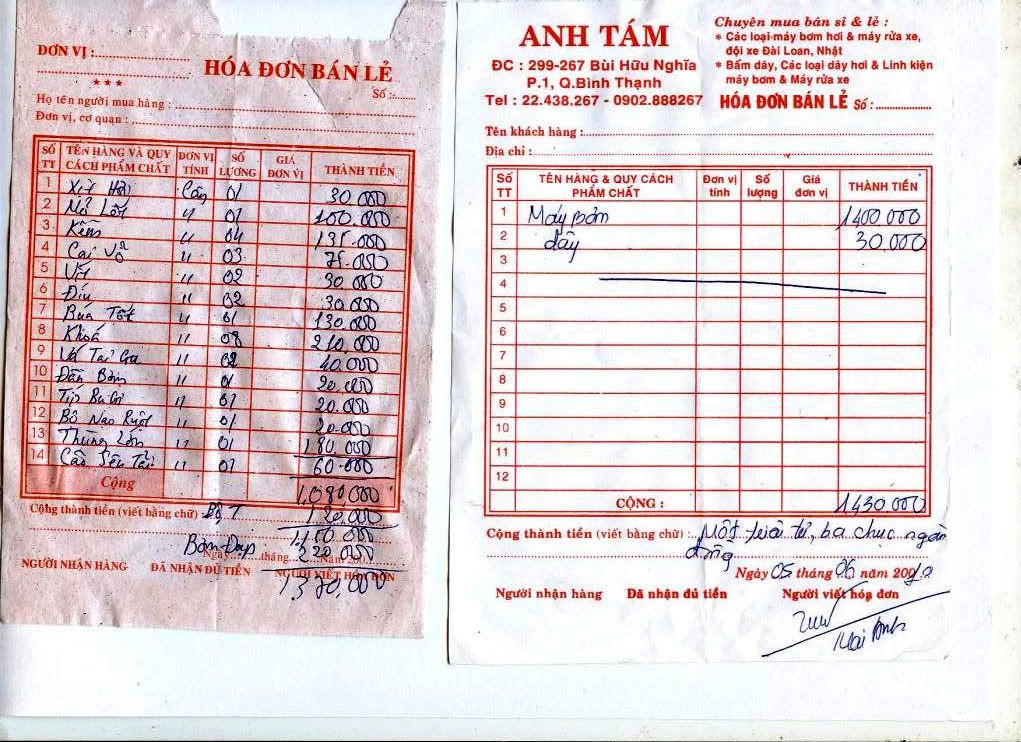 ĐƠN VỊ :
★ ★ ★
HÓA ĐƠN BÁN LẺ
Số :
Họ tên người mua hàng :
Đơn vị, cơ quan :
SỐ TT TÊN HÀNG VÀ QUY CÁCH PHẨM CHẤT ĐƠN VỊ TÍNH SỐ LƯỢNG GIÁ ĐƠN VỊ THÀNH TIỀN
1 01 30 000
2 Mỏ Lết " 01 100.000
3 Kềm " 04 135.000
4 " 03 75.000
5 Vít " 02 30 000
6 " 02 30 000
7 Búa " 01 130.000
8 Khoá " 08 210,000
9 " 02 40.000
10 " 01 20.000
11 " 01 20.000
12 " 01 20.000
13 Thùng Lớn " 01 180,000
14 " 01 60.000
Cộng 1,080 000
Cộng thành tiền (viết bằng chữ) : 120,000
Bơm Đạp 220 000
Ngày tháng Năm 200
NGƯỜI NHẬN HÀNG ĐÃ NHẬN ĐỦ TIỀN NGƯỜI VIẾT HÓA ĐƠN
ANH TÁM
ĐC : 299-267 Bùi Hữu Nghĩa
P.1, Q.Bình Thạnh
Tel : 22.438.267 - 0902.888267
Chuyên mua bán sỉ & lẻ :
* Các loại máy bơm hơi & máy rửa xe,
đội xe Đài Loan, Nhật
* Bấm dây, Các loại dây hơi & Linh kiện
máy bơm & Máy rửa xe
HÓA ĐƠN BÁN LẺ Số :
Tên khách hàng :
Địa chỉ :
Số TT TÊN HÀNG & QUY CÁCH PHẨM CHẤT Đơn vị tính Số lượng Giá đơn vị THÀNH TIỀN
1 Máy bơm 1400 000
2 dây 30.000
3
4
5
6
7
8
9
10
11
12
CỘNG : 1430 000
Cộng thành tiền (viết bằng chữ) : Một triệu tư, ba chục ngàn
đồng
Ngày 05 tháng 06 năm 2010
Người nhận hàng Đã nhận đủ tiền Người viết hóa đơn